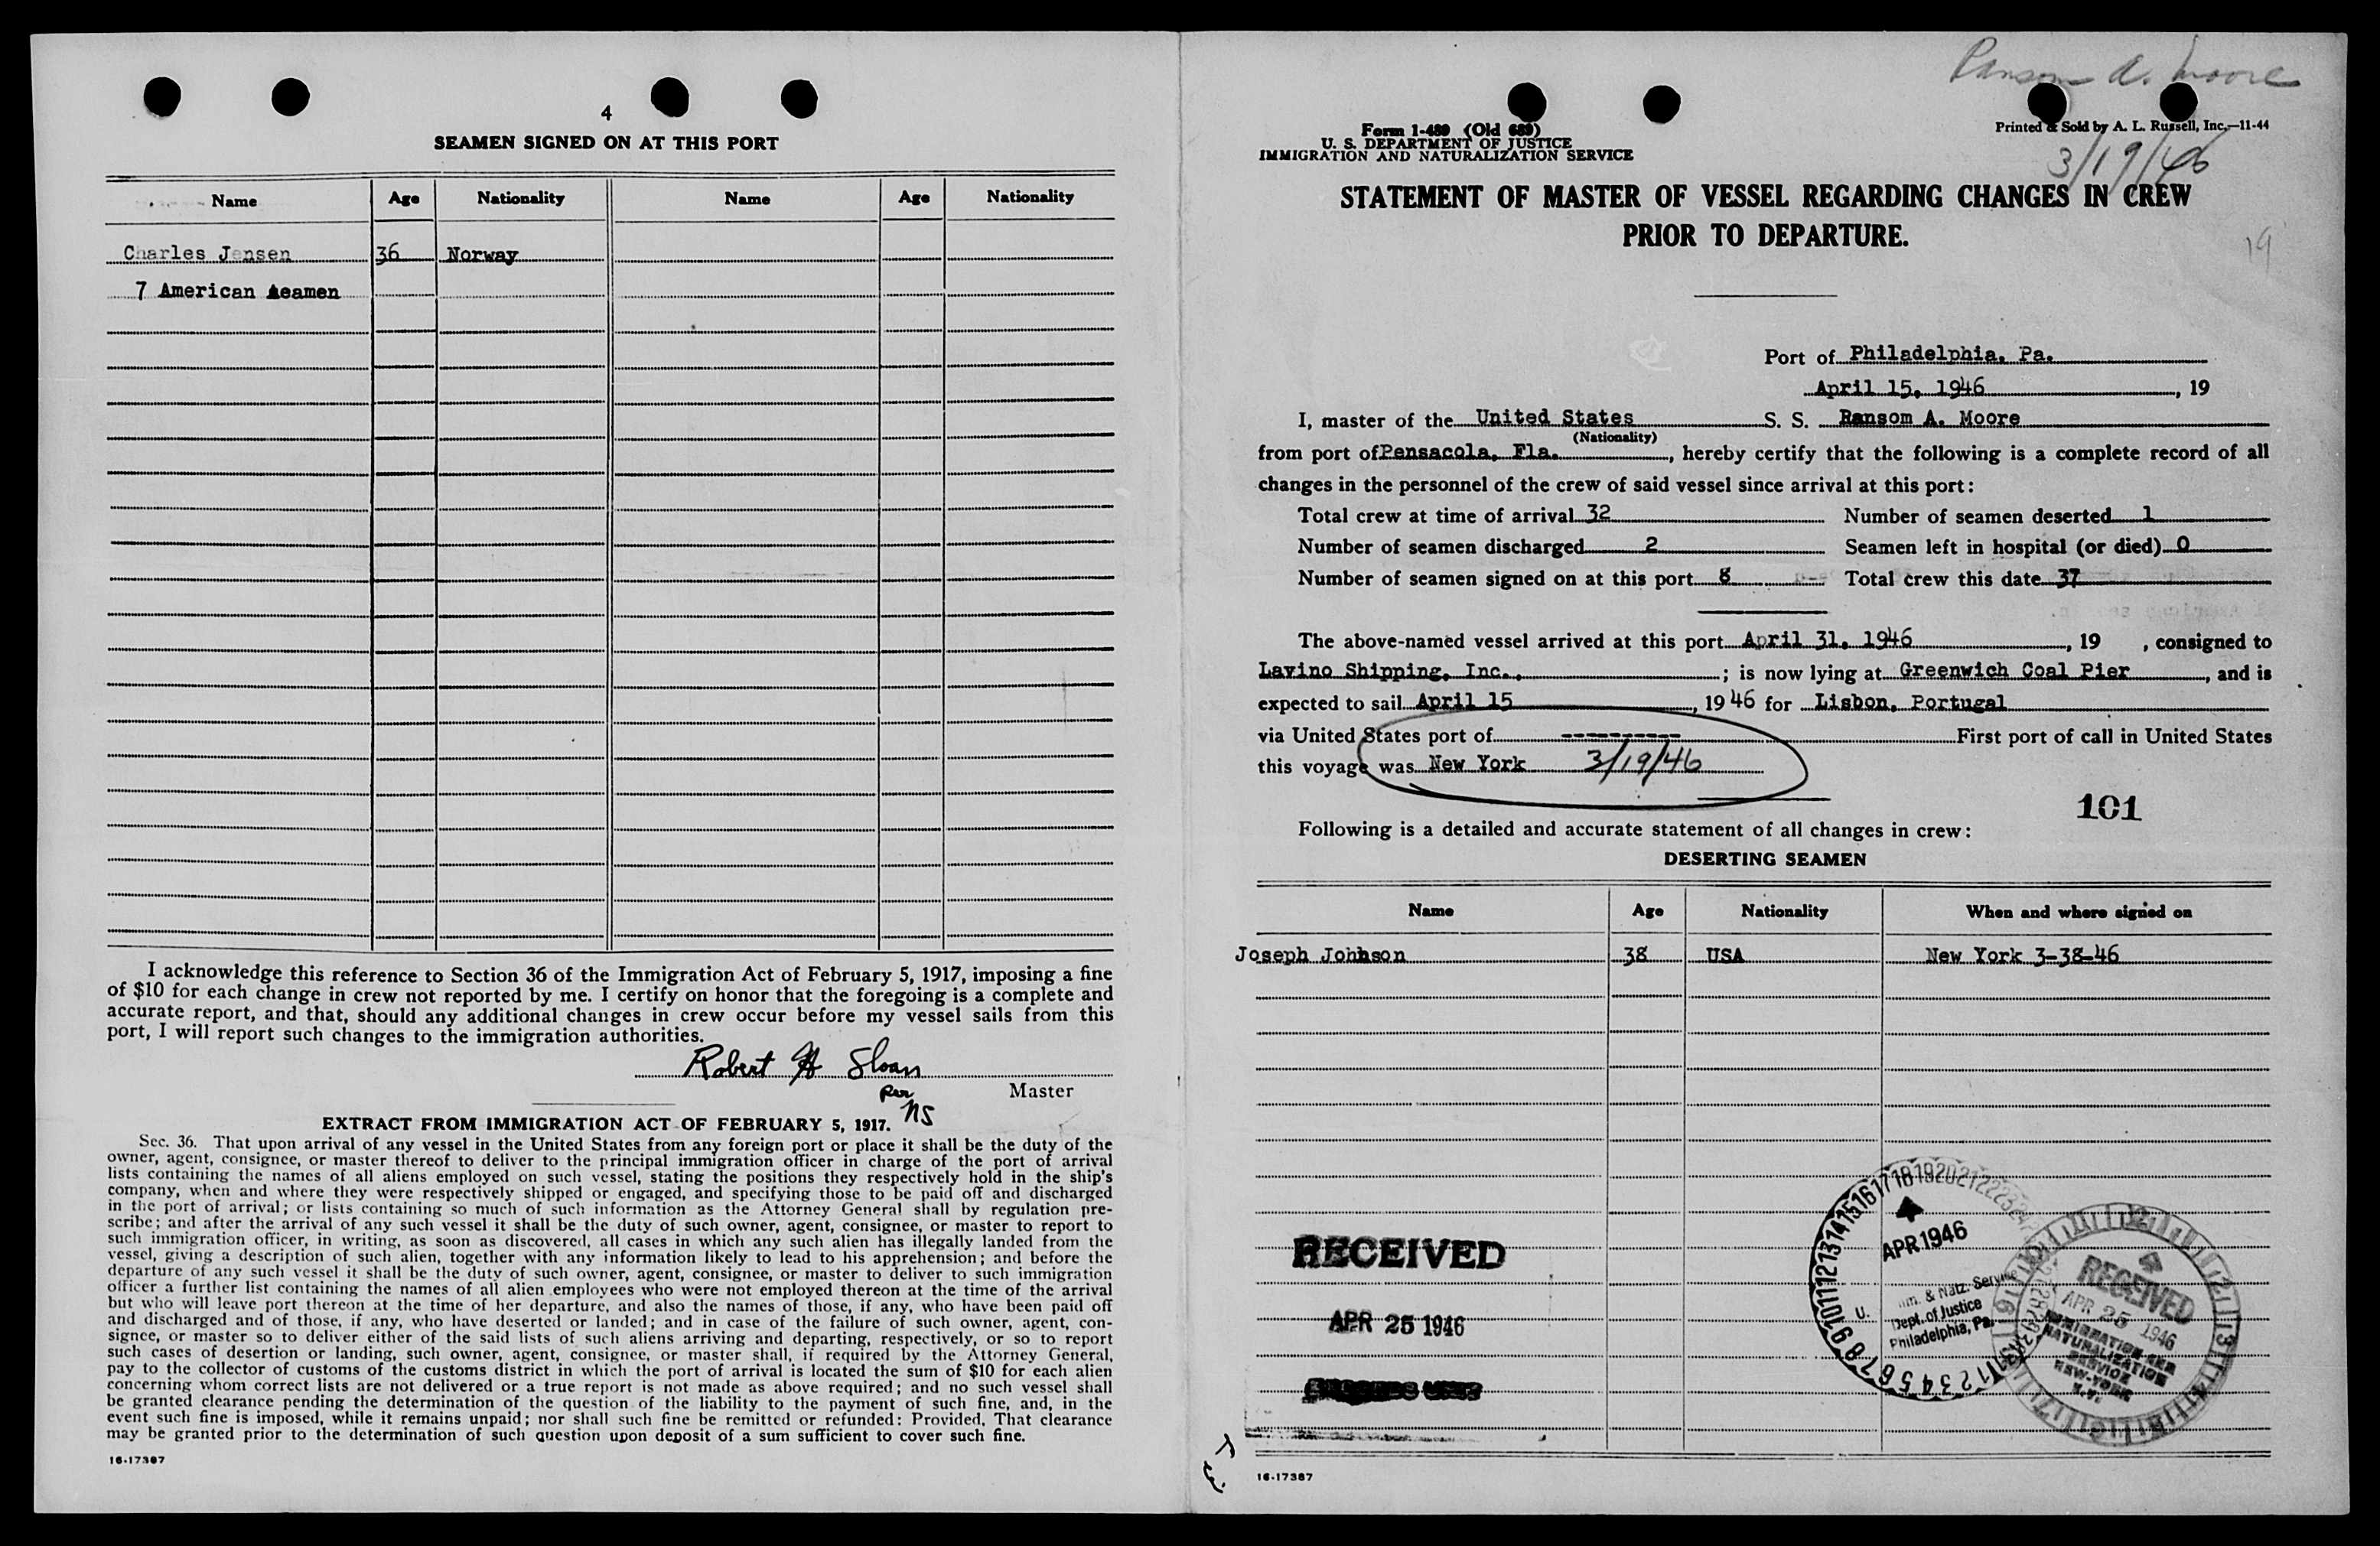 4
SEAMEN SIGNED ON AT THIS PORT
Name Age Nationality Name Age Nationality
Charles Jensen 36 Norway
7 American Aeamen
I acknowledge this reference to Section 36 of the Immigration Act of February 5, 1917, imposing a fine
of $10 for each change in crew not reported by me. I certify on honor that the foregoing is a complete and
accurate report, and that, should any additional changes in crew occur before my vessel sails from this
port, I will report such changes to the immigration authorities.
Robert H Sloan
per Master
NS
EXTRACT FROM IMMIGRATION ACT OF FEBRUARY 5, 1917.
Sec. 36. That upon arrival of any vessel in the United States from any foreign port or place it shall be the duty of the
owner, agent, consignee, or master thereof to deliver to the principal immigration officer in charge of the port of arrival
lists containing the names of all aliens employed on such vessel, stating the positions they respectively hold in the ship's
company, when and where they were respectively shipped or engaged, and specifying those to be paid off and discharged
in the port of arrival; or lists containing so much of such information as the Attorney General shall by regulation pre-
scribe; and after the arrival of any such vessel it shall be the duty of such owner, agent, consignee, or master to report to
such immigration officer, in writing, as soon as discovered, all cases in which any such alien has illegally landed from the
vessel, giving a description of such alien, together with any information likely to lead to his apprehension; and before the
departure of any such vessel it shall be the duty of such owner, agent, consignee, or master to deliver to such immigration
officer a further list containing the names of all alien employees who were not employed thereon at the time of the arrival
but who will leave port thereon at the time of her departure, and also the names of those, if any, who have been paid off
and discharged and of those, if any, who have deserted or landed; and in case of the failure of such owner, agent, con-
signee, or master so to deliver either of the said lists of such aliens arriving and departing, respectively, or so to report
such cases of desertion or landing, such owner, agent, consignee, or master shall, if required by the Attorney General,
pay to the collector of customs of the customs district in which the port of arrival is located the sum of $10 for each alien
concerning whom correct lists are not delivered or a true report is not made as above required; and no such vessel shall
be granted clearance pending the determination of the question of the liability to the payment of such fine, and, in the
event such fine is imposed, while it remains unpaid; nor shall such fine be remitted or refunded: Provided, That clearance
may be granted prior to the determination of such question upon deposit of a sum sufficient to cover such fine.
16-17387
Ransom A. Moore
Form 1-489 (Old 689)
U. S. DEPARTMENT OF JUSTICE
IMMIGRATION AND NATURALIZATION SERVICE
Printed & Sold by A. L. Russell, Inc.—11-44
3/19/46
STATEMENT OF MASTER OF VESSEL REGARDING CHANGES IN CREW
PRIOR TO DEPARTURE.
19
Port of Philadelphia, Pa.
April 15, 1946, 19
I, master of the United States S. S. Ransom A. Moore
(Nationality)
from port of Pensacola, Fla., hereby certify that the following is a complete record of all
changes in the personnel of the crew of said vessel since arrival at this port:
Total crew at time of arrival 32 Number of seamen deserted 1
Number of seamen discharged 2 Seamen left in hospital (or died) 0
Number of seamen signed on at this port 8 Total crew this date 37
The above-named vessel arrived at this port April 31, 1946, 19 , consigned to
Lavino Shipping, Inc., ; is now lying at Greenwich Coal Pier, and is
expected to sail April 15, 1946 for Lisbon, Portugal
via United States port of ---------- First port of call in United States
this voyage was New York 3/19/46
101
Following is a detailed and accurate statement of all changes in crew:
DESERTING SEAMEN
Name Age Nationality When and where signed on
Joseph Johnson 38 USA New York 3-38-46
RECEIVED
APR 25 1946
1 2 3 4 5 6 7 8 9 10 11 12 13 14 15 16 17 18 19 20 21 22 23 24
APR 1946
U. Imm. & Natz. Service
Dept. of Justice
Philadelphia, Pa.
RECEIVED
APR 25 1946
IMMIGRATION AND
NATURALIZATION
SERVICE
NEW YORK
N.Y.
16-17387